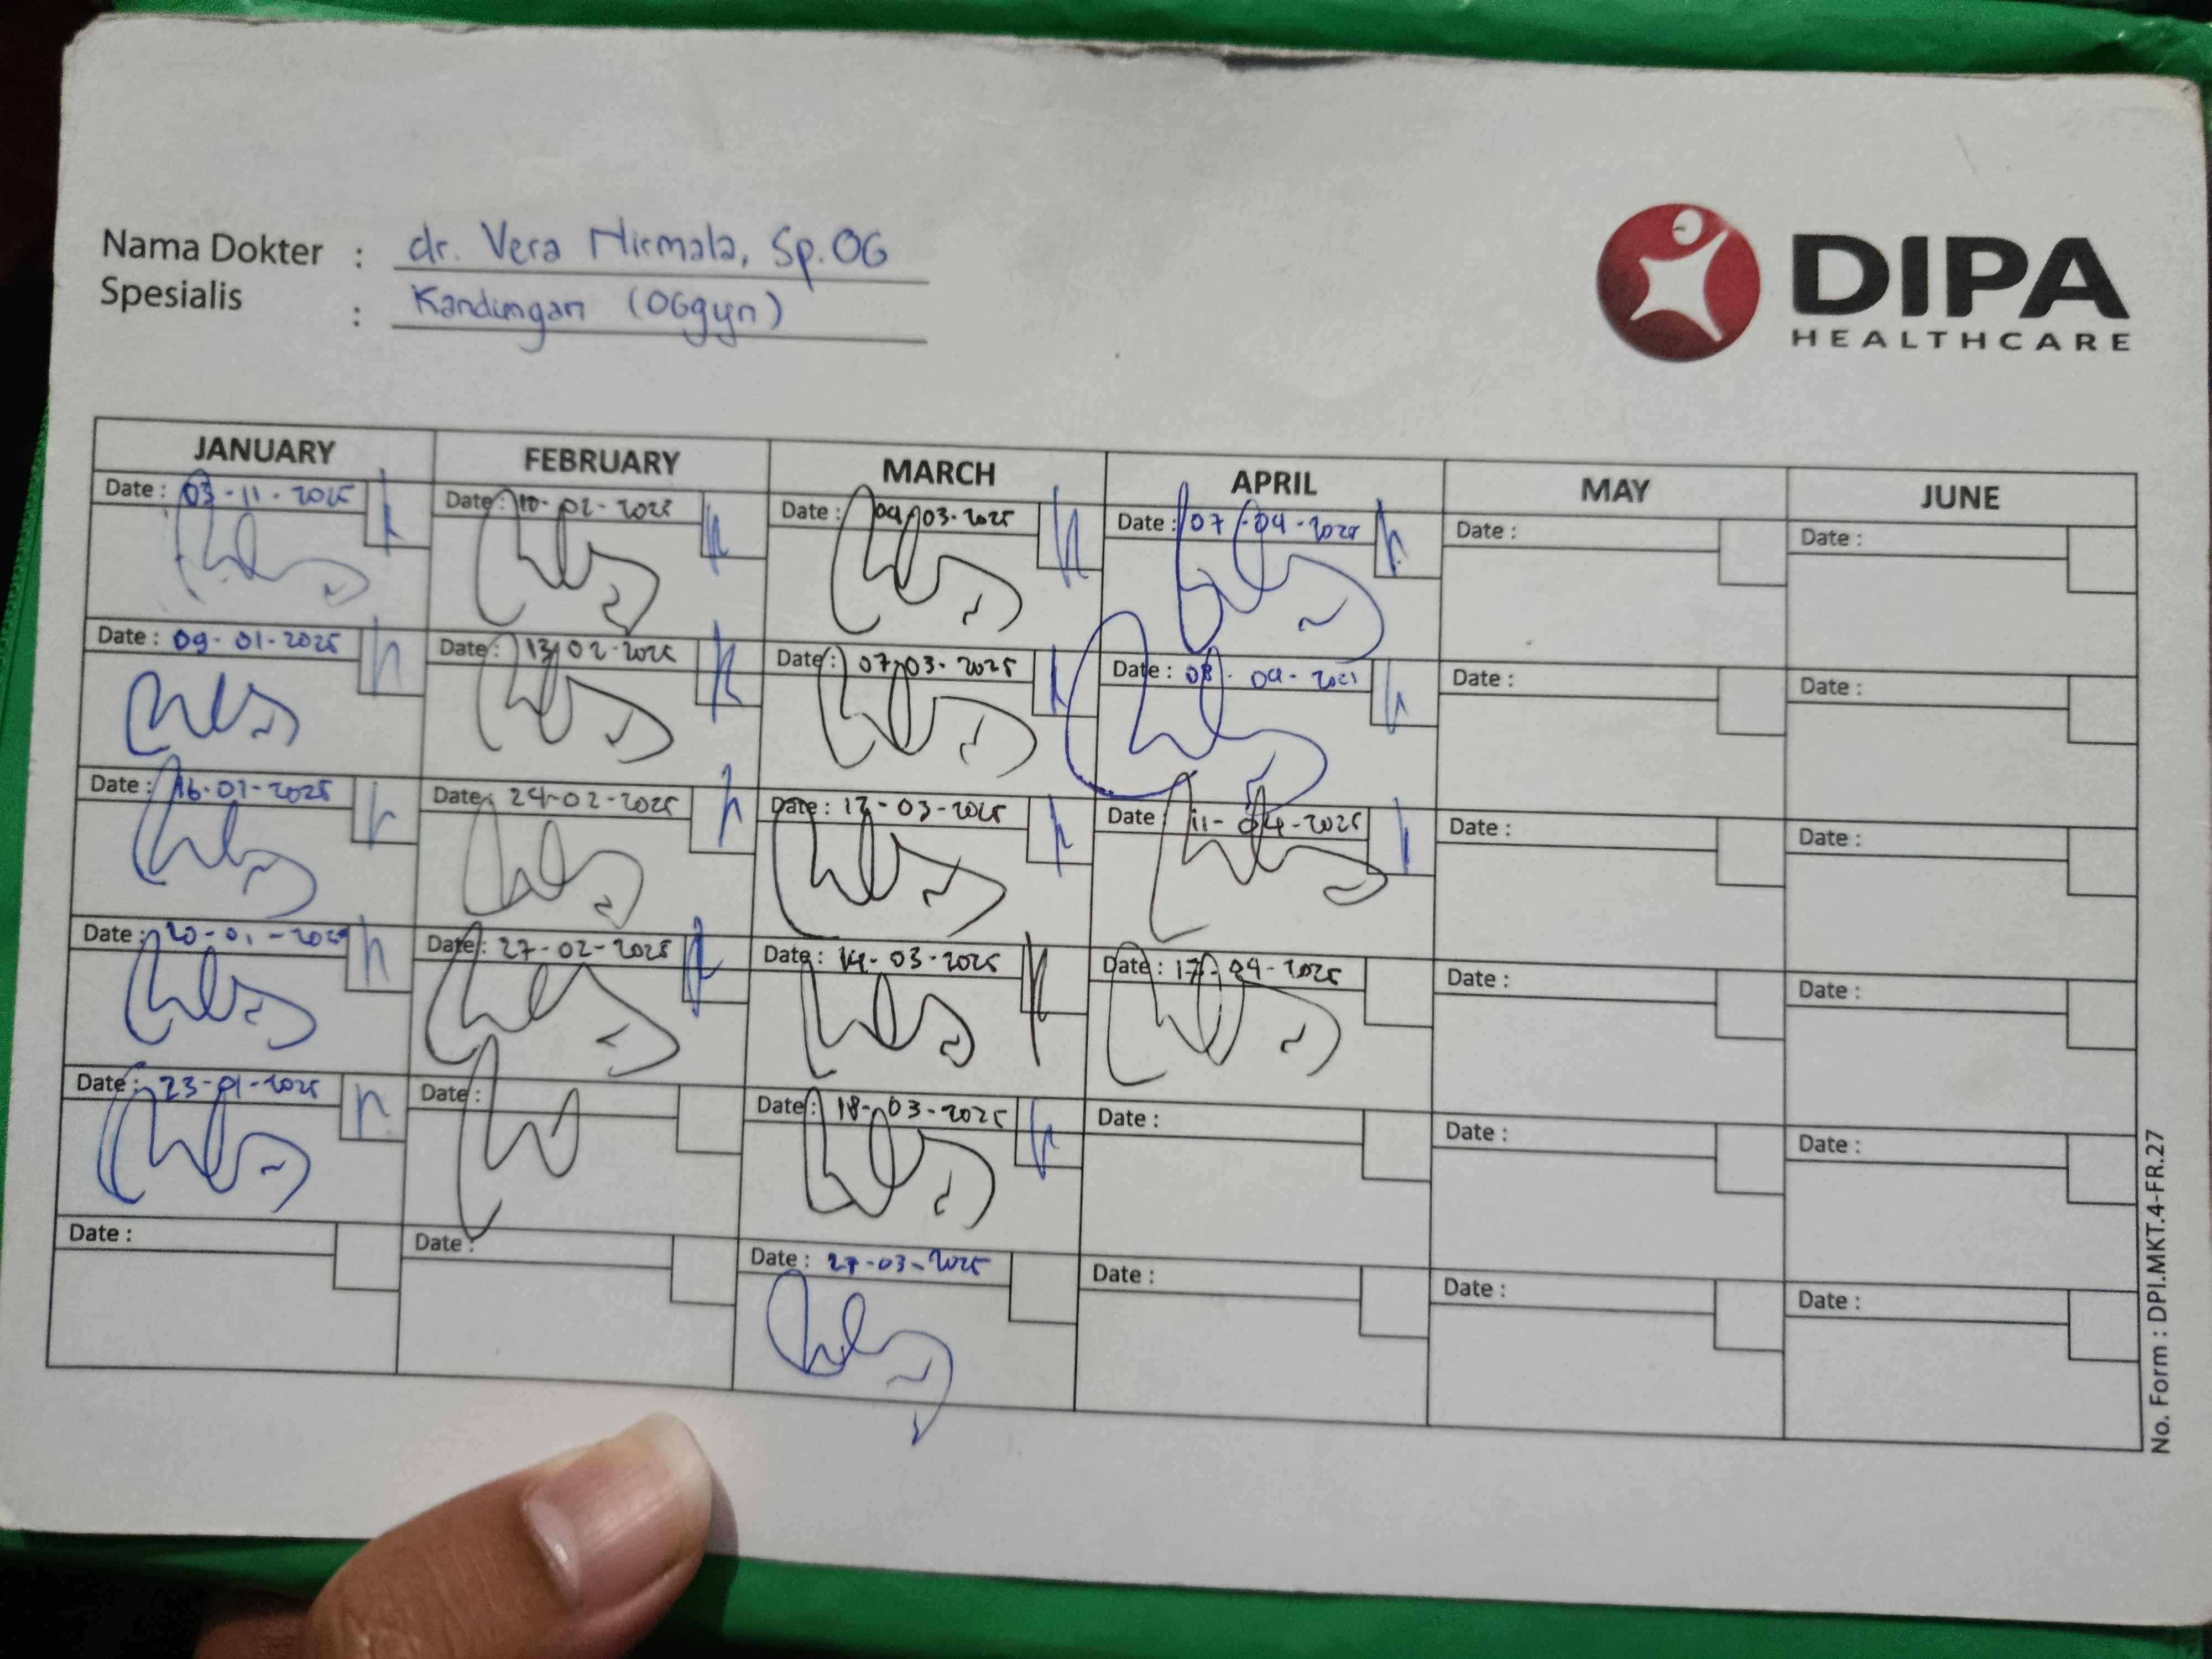 Nama Dokter : dr. Vera Nirmala, Sp.OG
Spesialis : Kandungan (OGgyn)
DIPA
HEALTHCARE
JANUARY FEBRUARY MARCH APRIL MAY JUNE
Date : 03-11-2025 Date : 10-02-2025 Date : 04-03-2025 Date : 07-04-2025 Date : Date :
Date : 09-01-2025 Date : 13-02-2025 Date : 07-03-2025 Date : 08-04-2025 Date : Date :
Date : 16-01-2025 Date : 24-02-2025 Date : 12-03-2025 Date : 11-04-2025 Date : Date :
Date : 20-01-2025 Date : 27-02-2025 Date : 14-03-2025 Date : 17-04-2025 Date : Date :
Date : 23-01-2025 Date : Date : 18-03-2025 Date : Date : Date :
Date : Date : Date : 27-03-2025 Date : Date : Date :
No. Form : DPI.MKT.4-FR.27